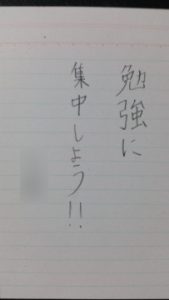 勉強に
集中しよう!!